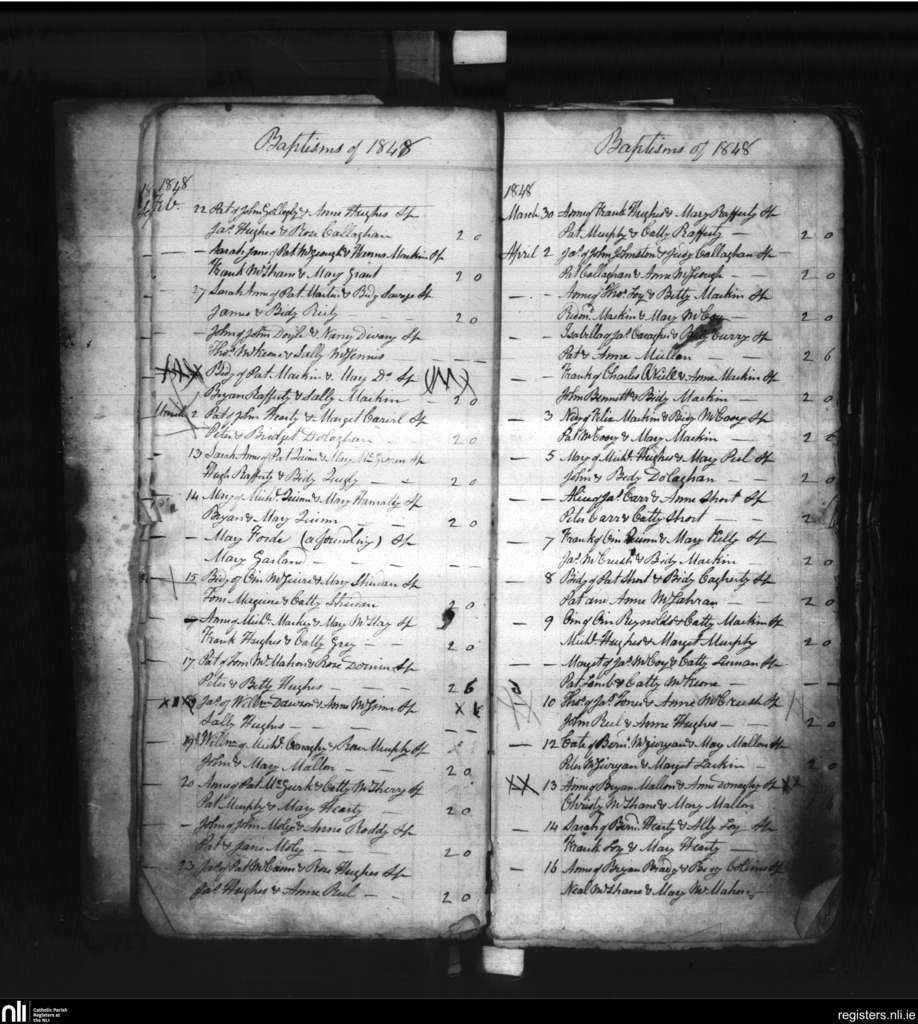 Baptisms of 1848
1848
Feb. 22 Pat of John Gollogly & Anne Hughes Sp
Jas. Hughes & Rose Callaghan 2 0
Sarah Jane of Pat McGeough & Mackin Sp
Frank McShane & Mary Grant 2 0
27 Sarah Anne of Pat. Martin & Bidy Savage Sp
James & Bidy Reily 2 0
John of John Doyle & Nancy Sp
Thos. McKeone & Sally
Bidy of Pat. Mackin & Mary Do. Sp
Bryan Rafferty & Sally Mackin 2 0
March 2 Pat of John Hearty & Marget Sp
Peter & Bridget Dolaghan 2 0
13 Sarah Anne of Pat Quinn & Mary Sp
Hugh Rafferty & Bidy 2 0
14 Mary of Michl. Quinn & Mary Hanratty Sp
Bryan & Mary Quinn 2 0
Mary Forde (a foundling) Sp
Mary Garland
15 Bidy of Own McGuire & Mary Sheridan Sp
Tom Maguire & Catty Sheridan 2 0
Anne of Michl. Mackey & Mary Sp
Frank Hughes & Catty Grey 2 0
17 Pat of Tom McMahon & Rose Sp
Peter & Betty Hughes 2 6
Jas. of Willm. Dawson & Anne Sp
Sally Hughes
19 Willm. of Michl. & Rose Murphy Sp
John & Mary Mallon 2 0
20 Anne of Pat McGurk & Catty McSherry Sp
Pat. Murphy & Mary Hearty 2 0
John of John Moley & Anne Roddy Sp
Pat & Jane Moley 2 0
23 Jas. of Pat McCann & Rose Hughes Sp
Jas. Hughes & Anne Reel 2 0
Baptisms of 1848
1848
March 30 Anne of Frank Hughes & Mary Rafferty Sp
Pat. Murphy & Catty Rafferty 2 0
April 2 Jas. of John Johnston & Judy Callaghan Sp
Pat Callaghan & Anne McGeough 2 0
Anne of Thos. Loy & Betty Mackin Sp
Redmd. Mackin & Mary McCoy 2 0
Isabella of Jas. & Curry Sp
Pat & Anne Mullen 2 6
Frank of Charles O'Neill & Anne Mackin Sp
John Bennett & Bidy Mackin 2 0
3 Nedy of Felix Mackin & Bidy McCoey Sp
Pat McCoey & Mary Mackin 2 0
5 Mary of Michl. Hughes & Mary Reel Sp
John & Bidy Dolaghan 2 0
Alice of Jas. Carr & Anne Short Sp
Peter Carr & Catty Short 2
7 Frank of Own Quinn & Mary Kelly Sp
Jas. McCreesh & Bidy Mackin 2 0
8 Bidy of Pat Short & Bidy Sp
Pat and Anne 2 0
9 Own of Own Reynolds & Catty Mackin Sp
Michl. Hughes & Marget Murphy 2 0
Marget of Jas. McCoy & Catty Lennan Sp
Pat Lamb & Catty McKeone
10 Thos. of Jas. Jones & Anne McCreesh Sp
John Reel & Anne Hughes 2 0
12 Cate of Bernd. & Mary Mallon Sp
Peter & Marget Larkin 2 0
13 Anne of Bryan Mallon & Anne Donaghy Sp
Christy McShane & Mary Mallon
14 Sarah of Bernd. Hearty & Ally Loy Sp
Frank Loy & Mary Hearty
16 Anne of Bryan Brady & Collins Sp
Neal McShane & Mary McMahon
nli
Catholic Parish
Registers at
the NLI
registers.nli.ie